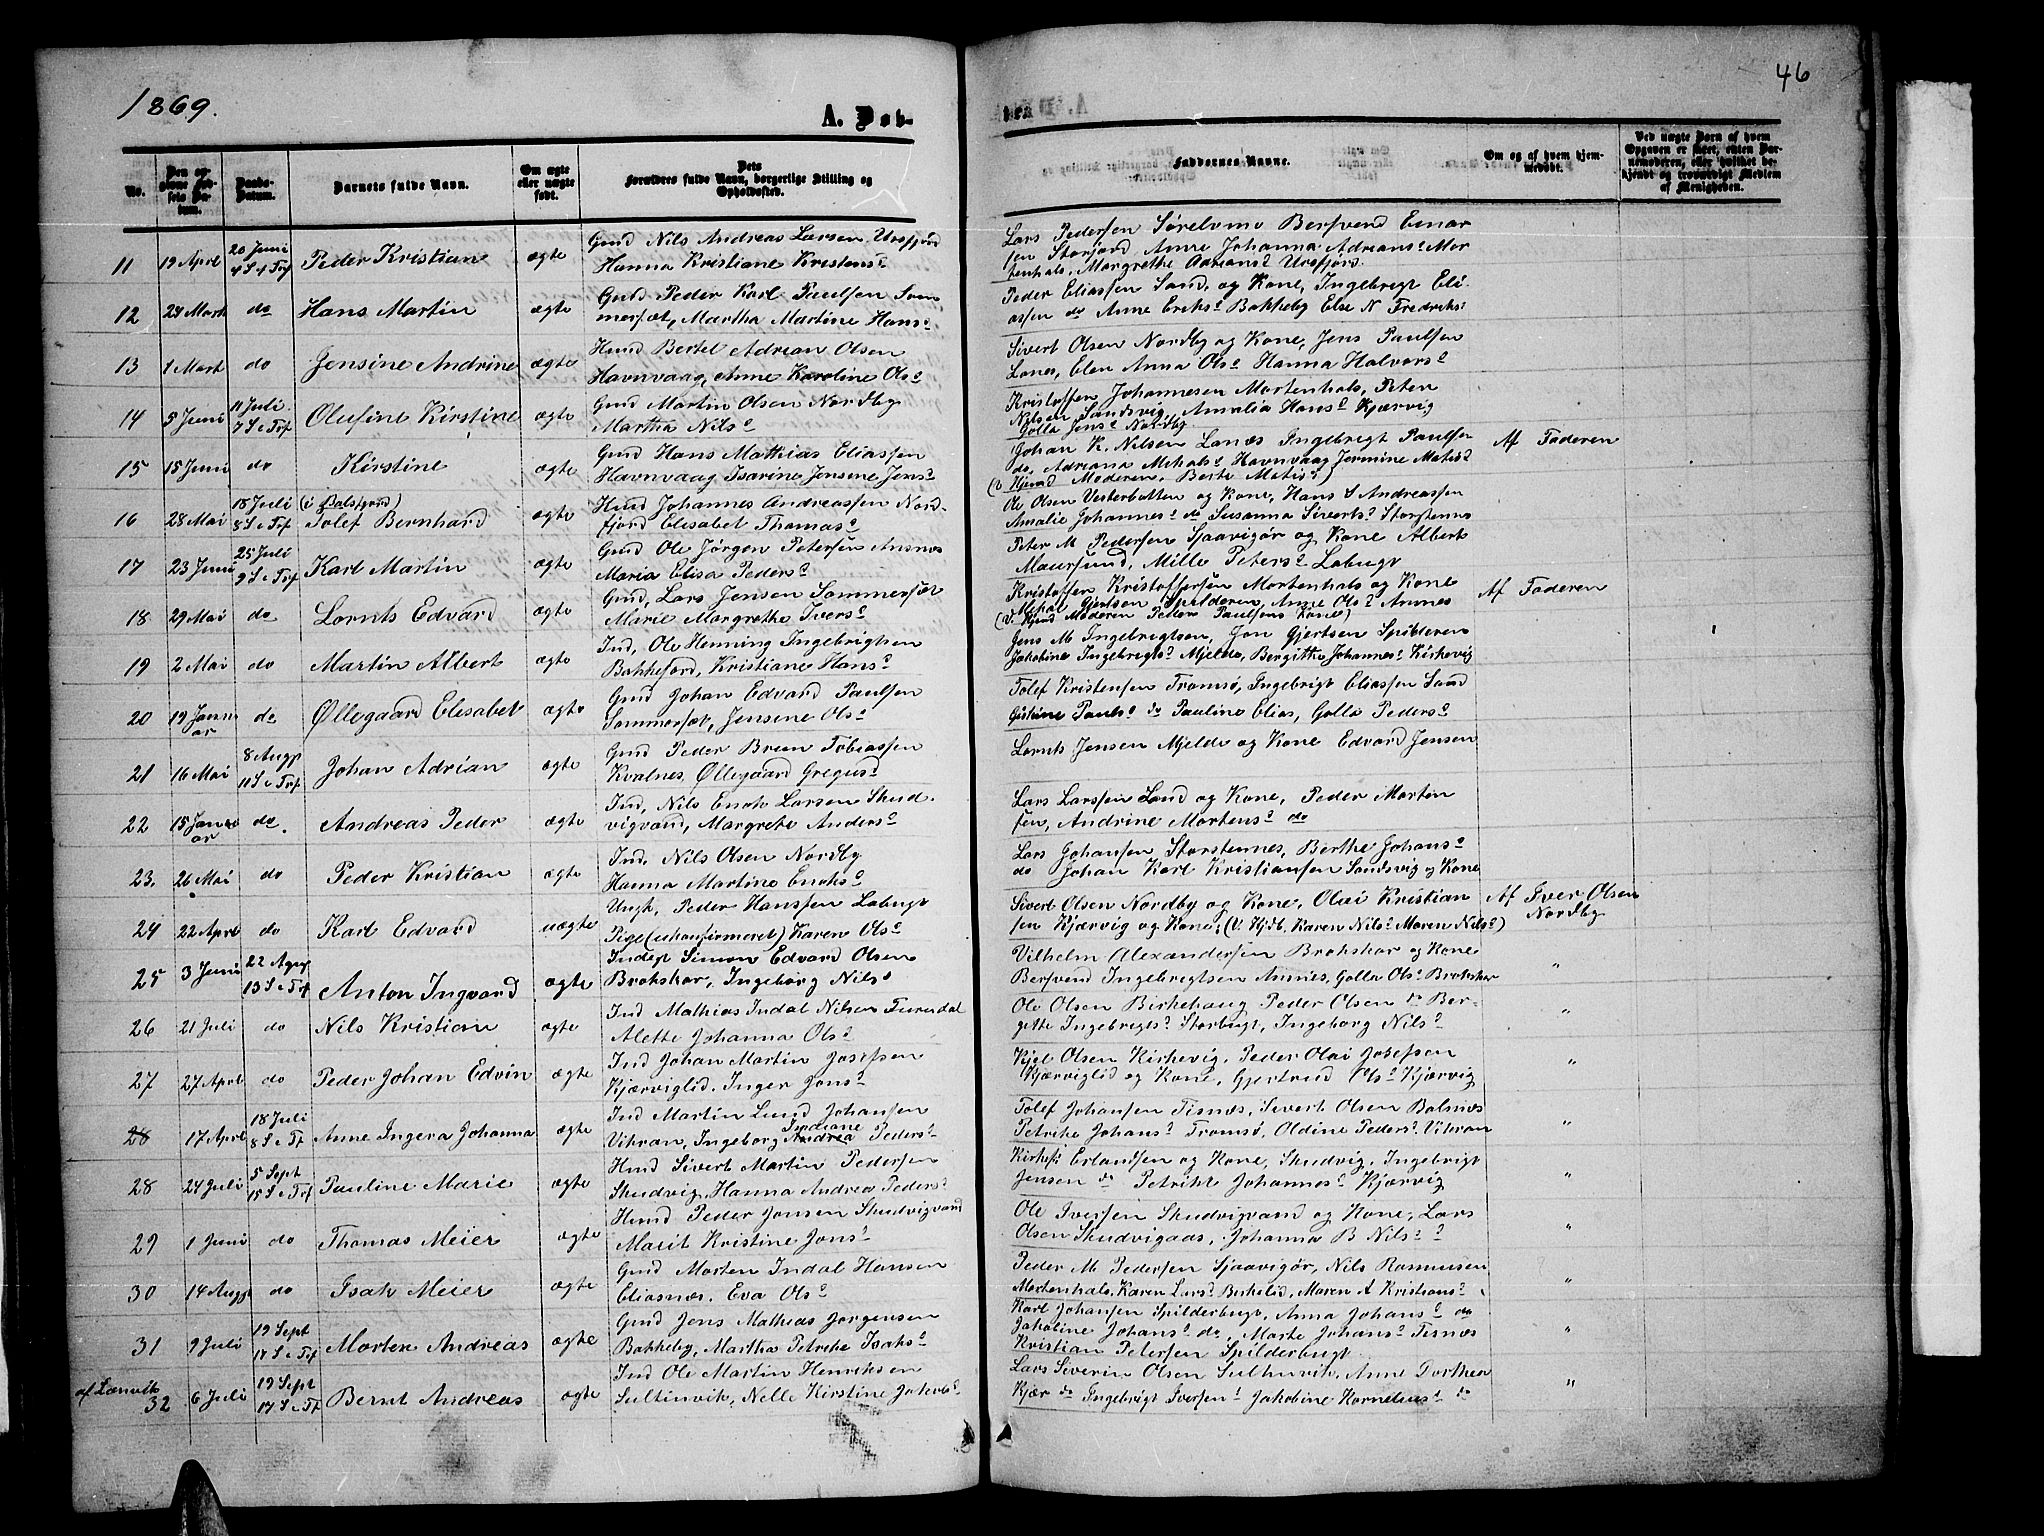 1869.
46
A. Døb-
bte
No.
Den opgivne Fødsels Datum.
Daabs-Datum.
Barnets fulde Navn.
Om ægte eller uægte født.
Dets Forældres fulde Navn, borgerlige Stilling og Opholdssted.
Faddernes Navne.
Om og af hvem hjemmedøbt.
Ved uægte Børn af hvem Opgaven er skeet, enten Barnemoderen, eller hvilket bekjendt og troværdigt Medlem af Menigheden.
11 19 April 20 Juni 4 S e Trf Peder Kristian ægte Gmd Nils Andreas Larsen, Ursfjord
Hanna Kristiane Kristensd
Lars Pedersen Sørelvmo Bersvend Einar
sen Storjord Anne Johanna Adriansd Mor
tenhals, Margrethe Adriansd Ursfjord
12 24 Marts do Hans Martin ægte Gmd Peder Karl Paulsen Som
mersæt, Martha Martine Hansd
Peder Eliassen Sand og Kone, Ingebrigt Eli
assen do Anne Eriksd Bakkeby Else N Fredriksd
13 1 Mart do Jensine Andrine ægte Hmd Bertel Adrian Olsen
Havnvaag, Anne Karoline Olsd
Sivert Olsen Nordby og Kone, Jens Paulsen
Lanes, Elen Anna Olsd Hanna Halvorsd
14 5 Juni 11 Juli 7 S e Trf Olufine Kirstine ægte Gmd Martin Olsen Nordby
Martha Nilsd
Kristoffer Johannesen Mortenhals, Peter
Nilsen Sandsvig, Amalia Hansd Kjærvig
Golla Jensd Nordby
15 15 Juni do Kirstine ægte Gmd Hans Mathias Eliassen
Havnvaag Isarine Jensine Jensd
Johan K. Nilsen Lanæs Ingebrigt Paulsen
do, Adriana Mikalsd Havnvaag Jermine Matisd
(v Hjmd Moderen, Berte Matisd)
Af Faderen
16 28 Mai 18 Juli 8 S e Trf (i Balsfjord) Tolef Bernhard ægte Hmd Johannes Andreassen Nord-
fjord Elisabet Thomasd
Ole Olsen Vesterbotten og Kone, Hans S Andreassen
Amalie Johannesd do Susanna Sivertsd Storstennes
17 23 Juni 25 Juli 9 S e Trf Karl Martin ægte Gmd Ole Jørgen Petersen Ansnes
Maria Elisa Pedersd
Peter M Pedersen Sjaavigør og Kone Albert
Maursund, Mille Petersd Labugt
18 29 Mai do Lornts Edvard ægte Gmd, Lars Jensen Sommersæt
Marie Margrethe Iversd
Kristoffer Kristoffersen Mortenhals og Kone
Mikal Gjertsen Spilderen, Anne Olsd Annes
(v. Hjmd Moderen Peder Paulsens Kone)
Af Faderen
19 2 Mai do Martin Albert ægte Ind, Ole Henning Ingebrigtsen
Bakkejord, Kristiane Hansd
Jens M Ingebrigtsen, Jon Gjertsen Spilderen
Jakobine Ingebrigtsd Mjelde, Bergitte Johannesd Kirkevig
20 19 Januar do Øllegaard Elisabet ægte Gmd Johan Edvard Paulsen
Sommersæt, Jensine Olsd
Tolef Kristensen Tromsø, Ingebrigt Eliassen Sand
Gistine Paulsd do Pauline Elias, Golla Pedersd
21 16 Mai 8 Augs 11 S e Trf Johan Adrian ægte Gmd Peder Brun Tobiassen
Kvalnes, Øllegaard Gregusd
Lornts Jensen Mjelde og Kone Edvard Jensen
22 15 Januar do. Andreas Peder ægte Ind, Nils Enok Larsen Skud
vigvand, Margrete Andersd
Lars Larssen Sand og Kone, Peder Morten
sen, Andrine Mortensd do
23. 26 Mai do Peder Kristian ægte Ind, Nils Olsen Nordby
Hanna Martine Enoksd
Lars Johansen Storstennes, Berthe Johansd
do Johan Karl Kristiansen Sandsvig og Kone
24 22 April do Karl Edvard uægte Ungk, Peder Hanssen Labugt
Pige (ukonfirmeret) Karen Olsd
Sivert Olsen Nordby og Kone, Olai Kristian
sen Kjærvig og Kone, (v. Hjdb. Karen Nilsd Maren Nilsd)
Af Iver Olsen
Nordby
25 3 Juni 22 Augs 13 S e Trf Anton Ingvard ægte Inderst Simon Edvard Olsen
Brokskar, Ingeborg Nilsd
Vilhelm Alexandersen Brokskar og Kone
Bersvend Ingebrigtsen Annes, Golla Olsd Brokskar "
26 21 Juli do Nils Kristian ægte Ind Mathias Indal Nilsen Furudal
Alette Johanna Olsd
Ole Olsen Birkehaug Peder Olsen do Ber-
gitte Ingebrigtsd Storbugt, Ingeborg Nilsd "
27 27 April do Peder Johan Edvin ægte Ind Johan Martin Josefsen
Kjærviglid, Inger Jonsd
Kjel Olsen Kirkevig, Peder Olai Josefsen
Kjærviglid og Kone, Gjertrud Olsd Kjærvig "
28 17 April 18 Juli 8 S e Tf Anne Ingera Johanna ægte Ind Martin Lund Johansen
Vikran, Ingeborg Andrea Indiane Pedersd
Tolef Johansen Tisnæs, Sivert Olsen Balsnæs
Petrike Johansd Tromsø, Oldine Pedersd Vikran "
28 24 Juli 5 Sept 15 S e Trf Pauline Marie ægte Hmd Sivert Martin Pedersen
Skudvig, Hanna Andrea Pedersd
Erlandsen og Kone, Skudvig, Ingebrigt
Jensen do Petrikke Johannesd Kjærvig "
29 1 Juni do Thomas Meier ægte Hmd Peder Jonsen Skudvigvand
Marit Kristine Jonsd
Ole Iversen Skudvigvand og Kone, Lars
Olsen Skudvigaas, Johanna B Nilsd "
30 14 Augs do Isak Meier ægte Gmd Morten Indal Hansen
Eliasnæs, Eva Olsd
Peder M Pedersen Sjaavigør, Nils Rasmusen
Mortenhals, Karen Larsd Birkelid, Maren A Kristiansd "
31 9 Juli 19 Sept 17 S e Tf Morten Andreas ægte Gmd Jens Mathias Jørgensen
Bakkeby, Martha Petrike Isaksd
Karl Johansen Spilderbugt, Anna Johansd do
Jakobine Johansd do, Marte Johansd Tisnæs
Kristian Petersen Spilderbugt "
af Lenvik
32 6 Juli 19 Sept 17 S e Tf Bernt Andreas ægte Ind Ole Martin Henriksen
Sultinvik, Nelle Kirstine Jakobsd
Lars Severin Olsen Sultinvik, Anne Dorthea
Kjær do Ingebrigt Iversen Jakobine Korneliusd do "